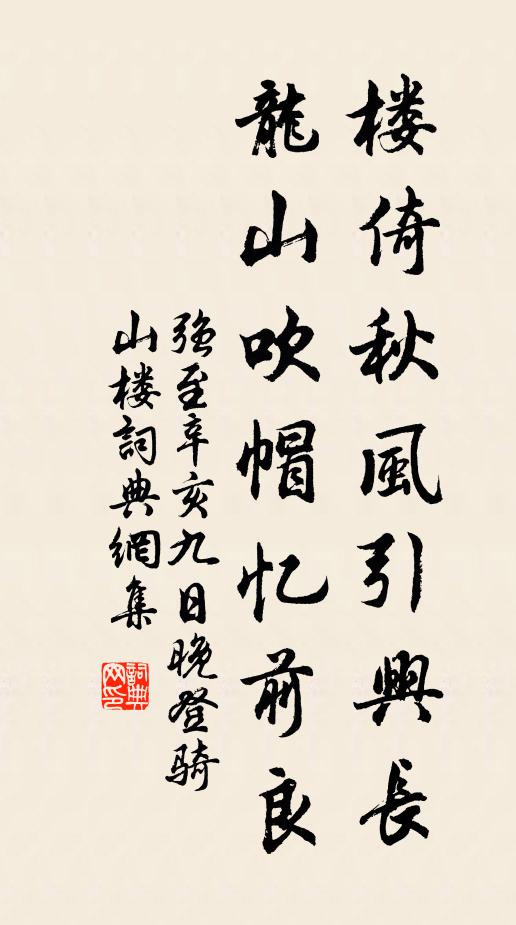 楼倚秋風引興長
龍山吹帽忆前良
強至辛亥九日晚登骑
山楼詞典網集
詞典网印